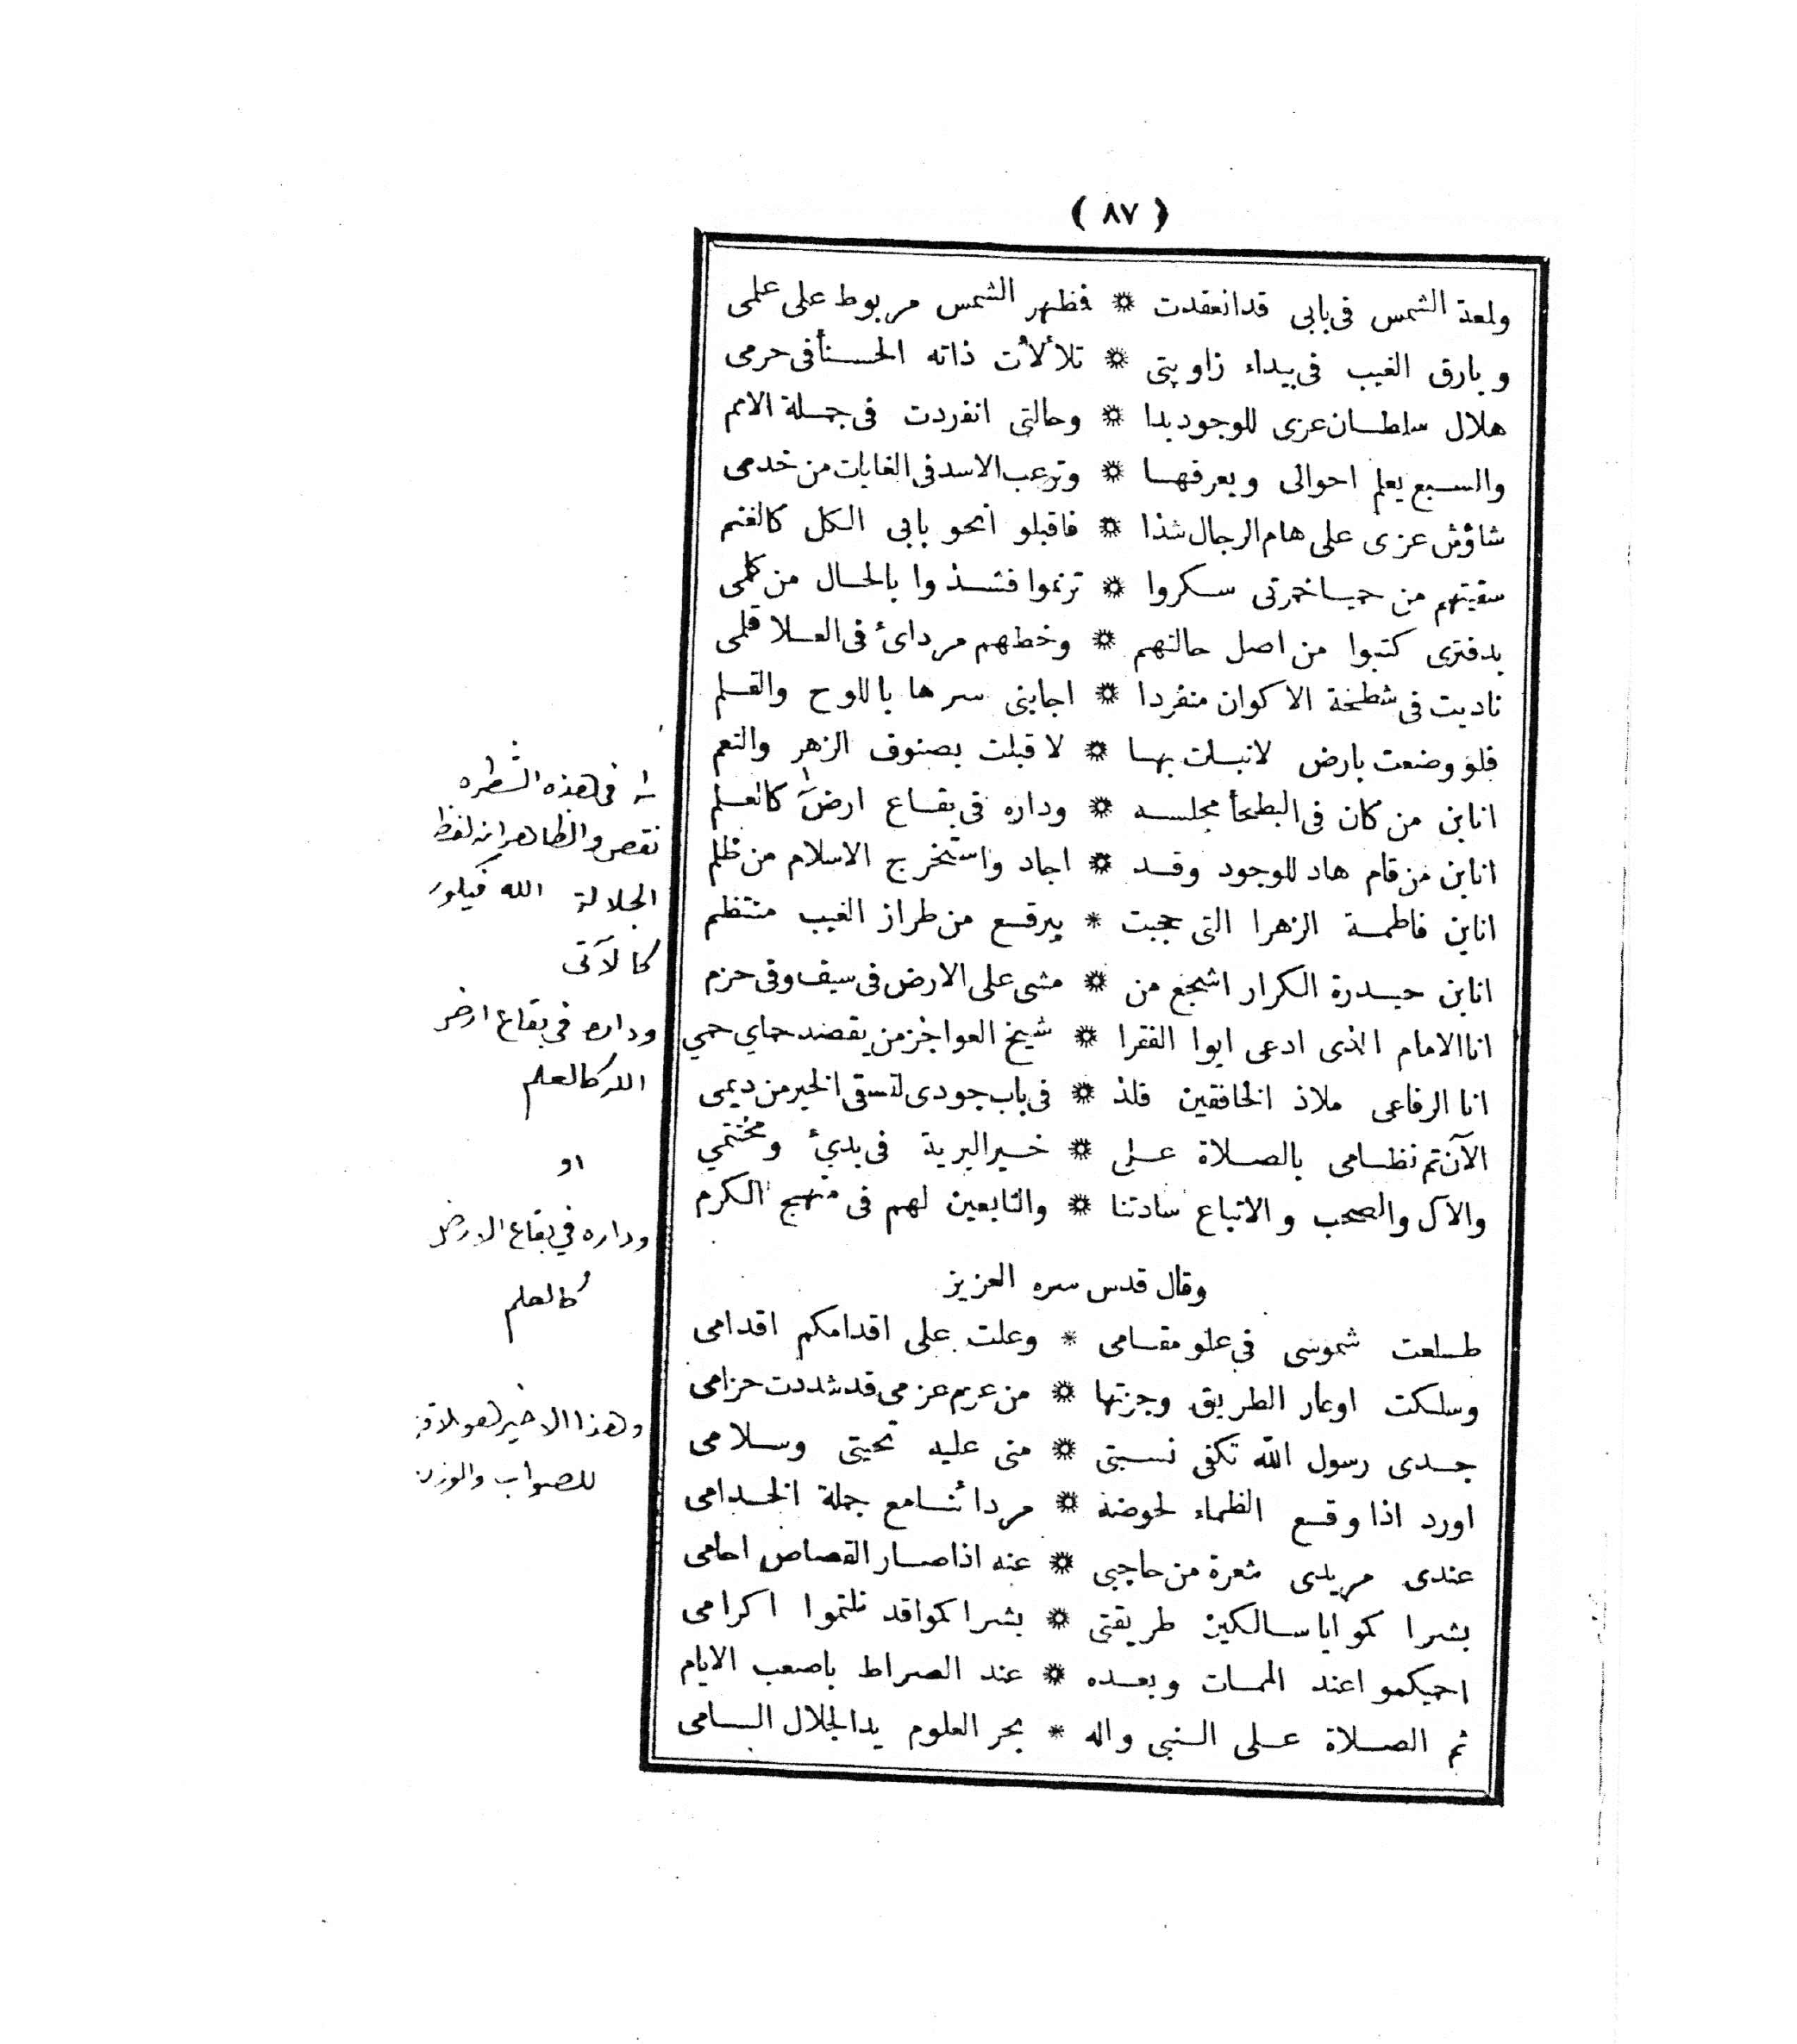 ( ٨٧ )
ولمعة الشمس فى بابى قد انعقدت * فظهر الشمس مربوط على علمى
وبارق الغيب فى بيداء زاويتى * تلألأت ذاته الحسنأ فى حرمى
هلال سلطان عزى للوجود بدا * وحالتى انفردت فى جملة الامم
والسبع يعلم احوالى ويعرفها * وترعب الاسد فى الغابات من خدمى
شاؤش عزى على هام الرجال شذا * فاقبلو أنحو بابى الكل كالغنم
سقيتهم من حميا خمرتى سكروا * ترنموا فشذوا بالحال من كلمى
بدفترى كتبوا من اصل حالتهم * وخطهم مردائ فى العلا قلمى
ناديت فى شطحة الاكوان منفردا * اجابنى سرها باللوح والقلم
فلو وضعت بارض لانبلت بها * لاقبلت بصنوف الزهر والنعم
انا ابن من كان فى البطحأ مجلسه * وداره فى بقاع ارض كالعلم
انا ابن من قام هاد للوجود وقد * اجاد واستخرج الاسلام من ظلم
انا ابن فاطمة الزهرا التى حجبت * ببرقع من طراز الغيب منتظم
انا ابن حيدرة الكرار اشجع من * مشى على الارض فى سيف وفى حزم
انا الامام الذى ادعى ابوا الفقرا * شيخ العواجز من يقصد حماي حمي
انا الرفاعى ملاذ الخافقين فلذ * فى باب جودى لتسقى الخير من ديمى
الآن تم نظامى بالصلاة على * خير البرية فى بدئ ومختتمي
والآل والصحب والاتباع سادتنا * والتابعين لهم فى منهج الكرم
وقال قدس سره العزيز
طلعت شموسى في علو مقامى * وعلت على اقدامكم اقدامى
وسلكت اوعار الطريق وجزتها * من عزم عزمى قد شددت حزامى
جدى رسول الله تكفى نسبتى * منى عليه تحيتى وسلامى
اورد اذا وقع الظماء لحوضه * مردائنا مع جملة الخدامى
عندى مريدى شعرة من حاجبى * عنه اذا صار القصاص احامى
بشرا كموا ياسالكين طريقتى * بشرا كموا قد نلتموا اكرامى
احميكموا عند الممات وبعده * عند الصراط باصعب الايام
ثم الصلاة على النبى واله * بحر العلوم يد الجلال السامى
فى هذه الشطره
نقص والظاهر انه لفظ
الجلالة الله فيكون
كالآتى
وداره فى بقاع ارض
الله كالعلم
او
وداره في بقاع الارض
كالعلم
وهذا الاخير هو
للصواب والوزن